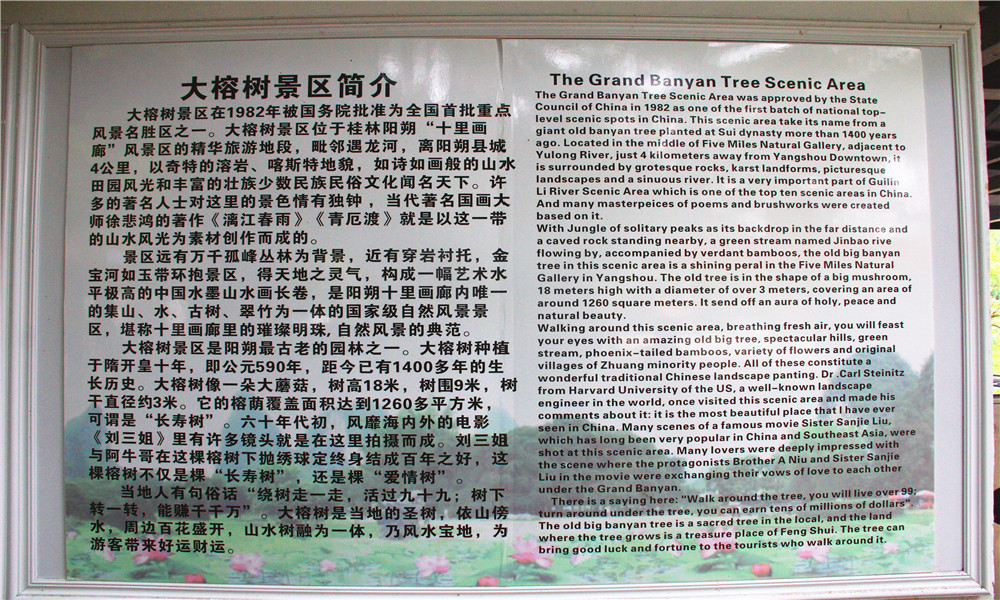 大榕树景区简介
大榕树景区在1982年被国务院批准为全国首批重点
风景名胜区之一。大榕树景区位于桂林阳朔“十里画
廊”风景区的精华旅游地段，毗邻遇龙河，离阳朔县城
4公里，以奇特的溶岩、喀斯特地貌，如诗如画般的山水
田园风光和丰富的壮族少数民族民俗文化闻名天下。许
多的著名人士对这里的景色情有独钟，当代著名国画大
师徐悲鸿的著作《漓江春雨》《青厄渡》就是以这一带
的山水风光为素材创作而成的。
景区远有万千孤峰丛林为背景，近有穿岩衬托，金
宝河如玉带环抱景区，得天地之灵气，构成一幅艺术水
平极高的中国水墨山水画长卷，是阳朔十里画廊内唯一
的集山、水、古树、翠竹为一体的国家级自然风景景
区，堪称十里画廊里的璀璨明珠,自然风景的典范。
大榕树景区是阳朔最古老的园林之一。大榕树种植
于隋开皇十年，即公元590年，距今已有1400多年的生
长历史。大榕树像一朵大蘑菇，树高18米，树围9米，树
干直径约3米。它的榕荫覆盖面积达到1260多平方米，
可谓是“长寿树”。六十年代初，风靡海内外的电影
《刘三姐》里有许多镜头就是在这里拍摄而成。刘三姐
与阿牛哥在这棵榕树下抛绣球定终身结成百年之好，这
棵榕树不仅是棵“长寿树”，还是棵“爱情树”。
当地人有句俗话“绕树走一走，活过九十九；树下
转一转，能赚千千万”。大榕树是当地的圣树，依山傍
水，周边百花盛开，山水树融为一体，乃风水宝地，为
游客带来好运财运。
The Grand Banyan Tree Scenic Area
The Grand Banyan Tree Scenic Area was approved by the State
Council of China in 1982 as one of the first batch of national top-
level scenic spots in China. This scenic area take its name from a
giant old banyan tree planted at Sui dynasty more than 1400 years
ago. Located in the middle of Five Miles Natural Gallery, adjacent to
Yulong River, just 4 kilometers away from Yangshou Downtown, it
is surrounded by grotesque rocks, karst landforms, picturesque
landscapes and a sinuous river. It is a very important part of Guilin
Li River Scenic Area which is one of the top ten scenic areas in China.
And many masterpeices of poems and brushworks were created
based on it.
With Jungle of solitary peaks as its backdrop in the far distance and
a caved rock standing nearby, a green stream named Jinbao rive
flowing by, accompanied by verdant bamboos, the old big banyan
tree in this scenic area is a shining peral in the Five Miles Natural
Gallery in Yangshou. The old tree is in the shape of a big mushroom,
18 meters high with a diameter of over 3 meters, covering an area of
around 1260 square meters. It send off an aura of holy, peace and
natural beauty.
Walking around this scenic area, breathing fresh air, you will feast
your eyes with an amazing old big tree, spectacular hills, green
stream, phoenix-tailed bamboos, variety of flowers and original
villages of Zhuang minority people. All of these constitute a
wonderful traditional Chinese landscape panting. Dr .Carl Steinitz
from Harvard University of the US, a well-known landscape
engineer in the world, once visited this scenic area and made his
comments about it: it is the most beautiful place that I have ever
seen in China. Many scenes of a famous movie Sister Sanjie Liu,
which has long been very popular in China and Southeast Asia, were
shot at this scenic area. Many lovers were deeply impressed with
the scene where the protagonists Brother A Niu and Sister Sanjie
Liu in the movie were exchanging their vows of love to each other
under the Grand Banyan.
There is a saying here: "Walk around the tree, you will live over 99;
turn around under the tree, you can earn tens of millions of dollars".
The old big banyan tree is a sacred tree in the local, and the land
where the tree grows is a treasure place of Feng Shui. The tree can
bring good luck and fortune to the tourists who walk around it.